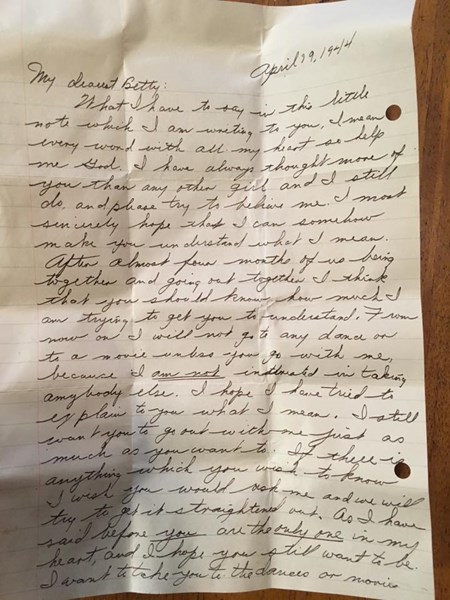 April 19, 1944
My dearest Betty:
What I have to say in this little
note which I am writing to you, I mean
every word with all my heart so help
me God. I have always thought more of
you than any other girl and I still
do, and please try to believe me. I most
sincerely hope that I can somehow
make you understand what I mean.
After almost four months of us being
together and going out together I think
that you should know how much I
am trying to get you to understand. From
now on I will not go to any dance or
to a movie unless you go with me,
because I am not interested in taking
anybody else. I hope I have tried to
explain to you what I mean. I still
want you to go out with me just as
much as you want to. If there is
anything which you wish to know
I wish you would ask me and we will
try to get it straightened out. As I have
said before you are the only one in my
heart, and I hope you still want to be.
I want to take you to the dances or movies